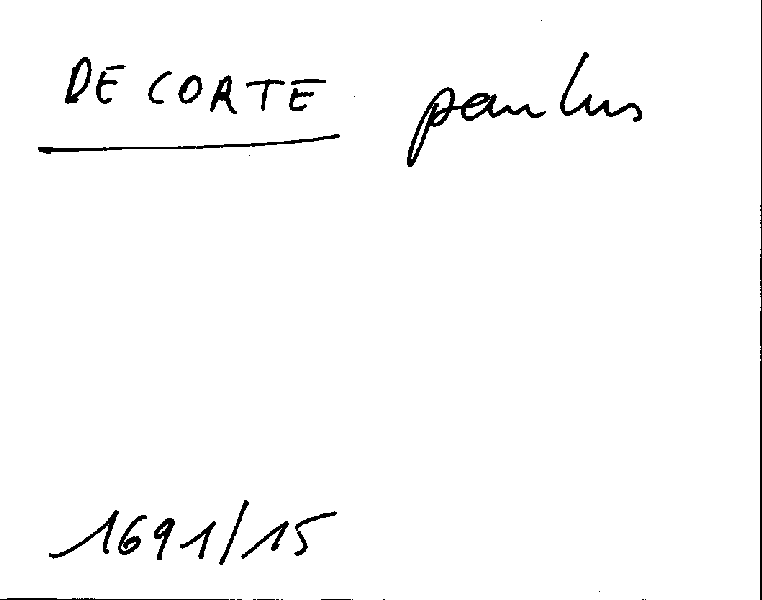 DE CORTE paulus
1691/15